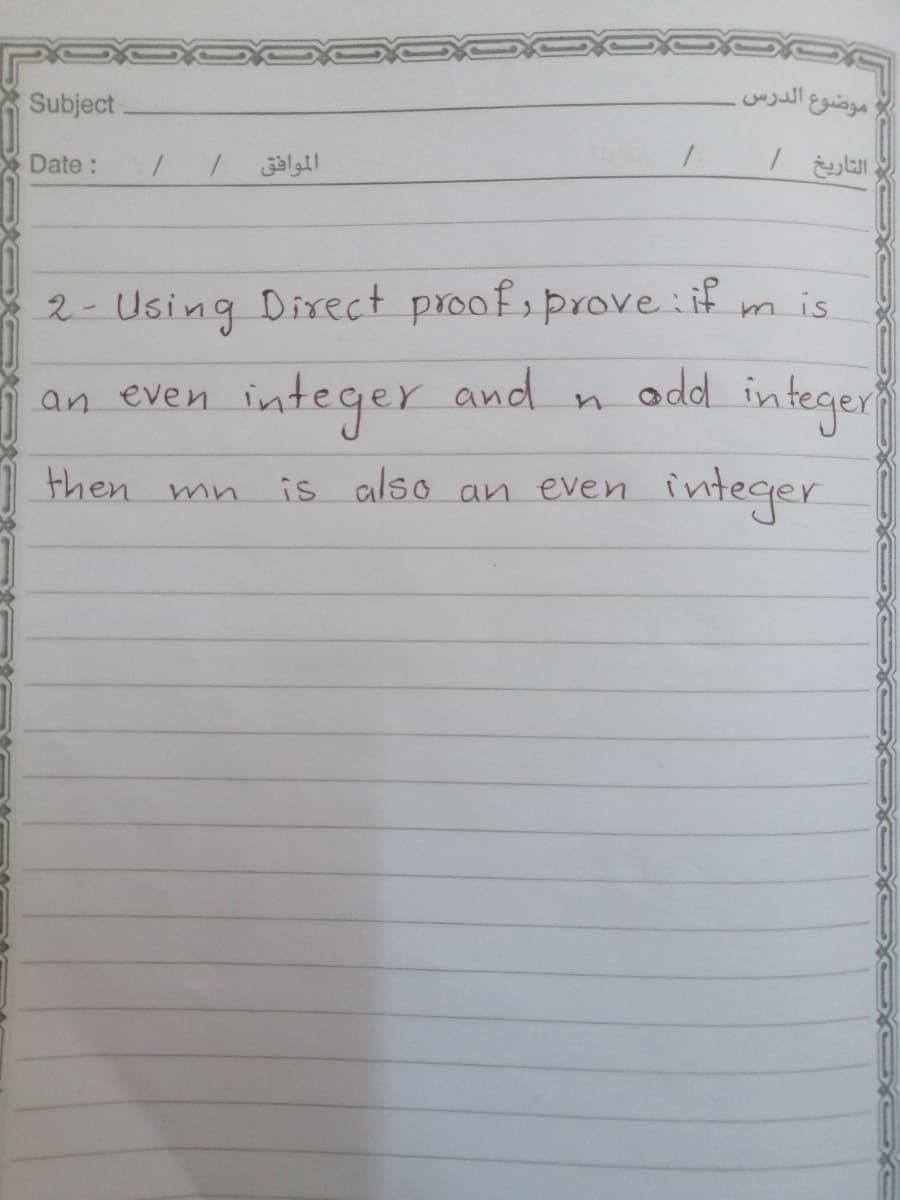 Subject موضوع الدرس
Date : / / الموافق / / التاريخ
2- Using Direct proof, prove: if m is
an even integer and n odd integer
then mn is also an even integer